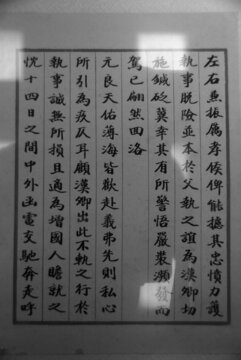 左右振厲孝侯俾能攄其忠憤力護
執事脫險並本於父執之誼為漢卿切
施鍼砭冀幸其有所警悟嚴裝瀕發而
駕已翩然回洛
元良天佑薄海皆歡赴義弗先則私心
所引為疚仄耳顧漢卿出此不軌之行於
執事誠無所損且適為增國人瞻就之
忱十四日之間中外函電交馳奔走呼